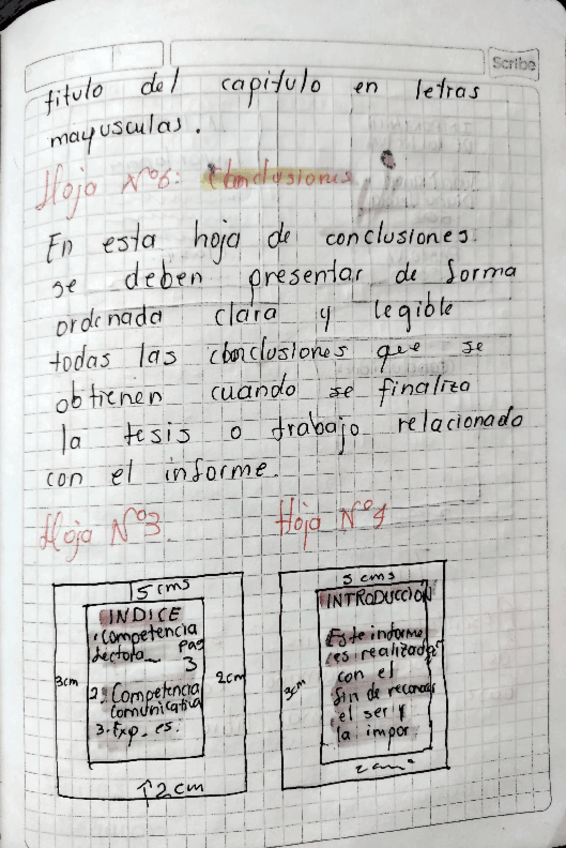 Scribe
titulo del capitulo en letras
mayusculas.
Hoja Nº6: Conclusiones
En esta hoja de conclusiones
se deben presentar de forma
ordenada clara y legible
todas las conclusiones que se
obtienen cuando se finaliza
la tesis o trabajo relacionado
con el informe.
Hoja Nº3.
5 cms
INDICE
1. Competencia
Lectora_ Pag
3
2. Competencia
comunicativa
3. Exp. es.
3cm
2cm
↑2cm
Hoja Nº4
5 cms
INTRODUCCIÓN
Este informe
es realizado
con el
fin de
el ser y
la impor
3cm
2cm